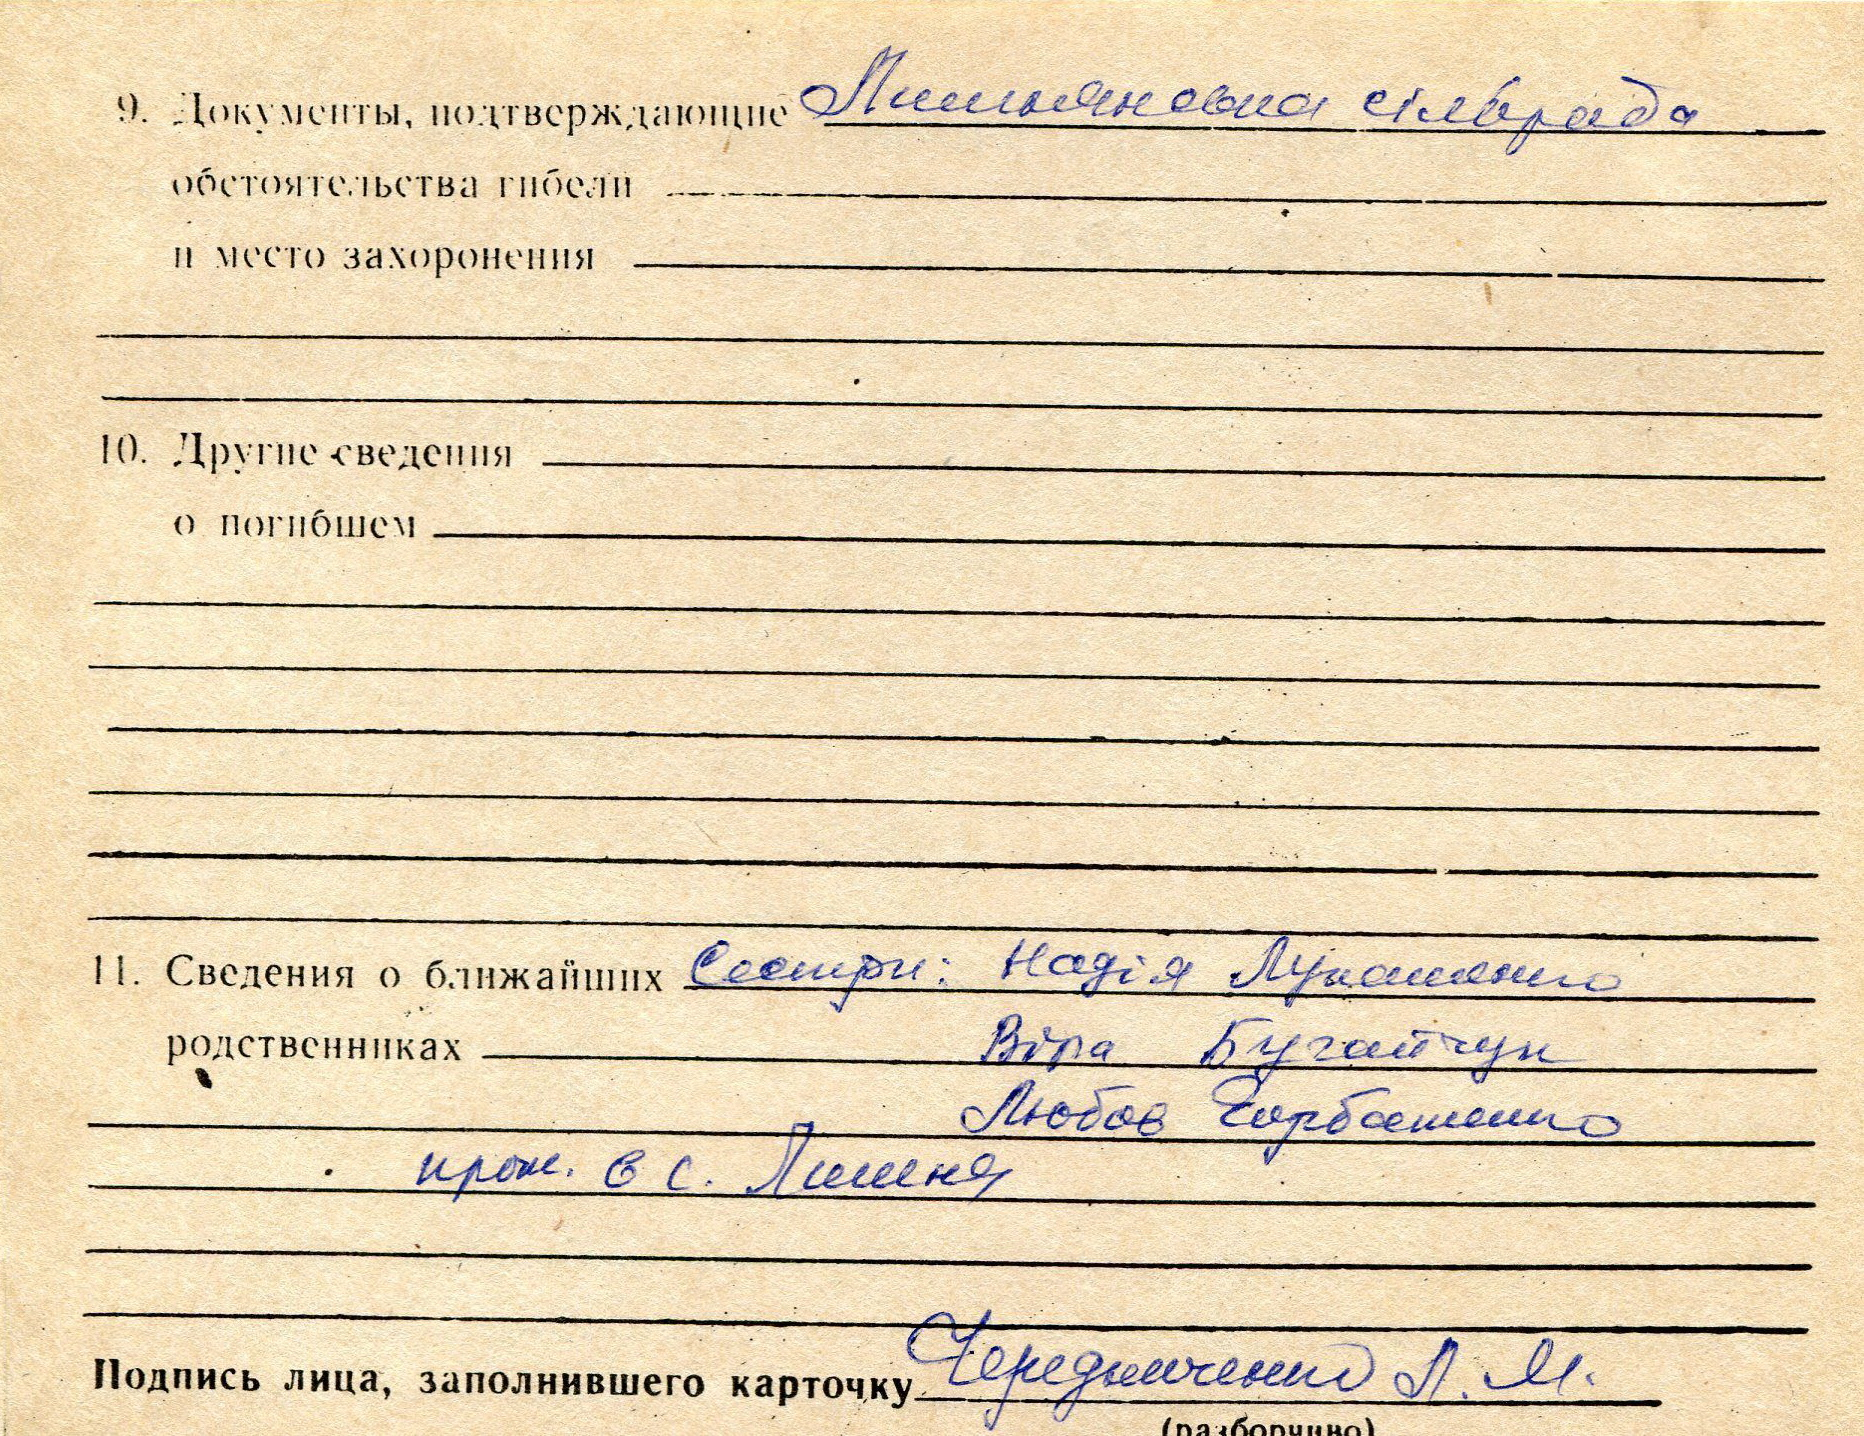 9. Документы, подтверждающие Лишнянська сільрада
обстоятельства гибели
и место захоронения
10. Другие сведения
о погибшем
11. Сведения о ближайших Сестри: Надія Лукашенко
родственниках Віра Бугайчук
Любов Горбатенко
прож. в с. Лишня
Подпись лица, заполнившего карточку Чередниченко Л. М.
(разборчиво)